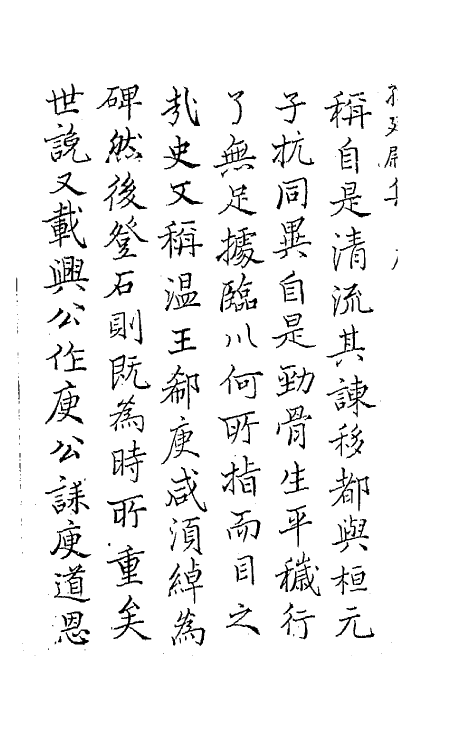 稱自是清流其諫移都與桓元
子抗同異自是勁骨生平穢行
了無足據臨川何所指而目之
哉史又稱溫王郗庾咸須綽為
碑然後登石則既為時所重矣
世說又載興公作庾公誄庾道恩